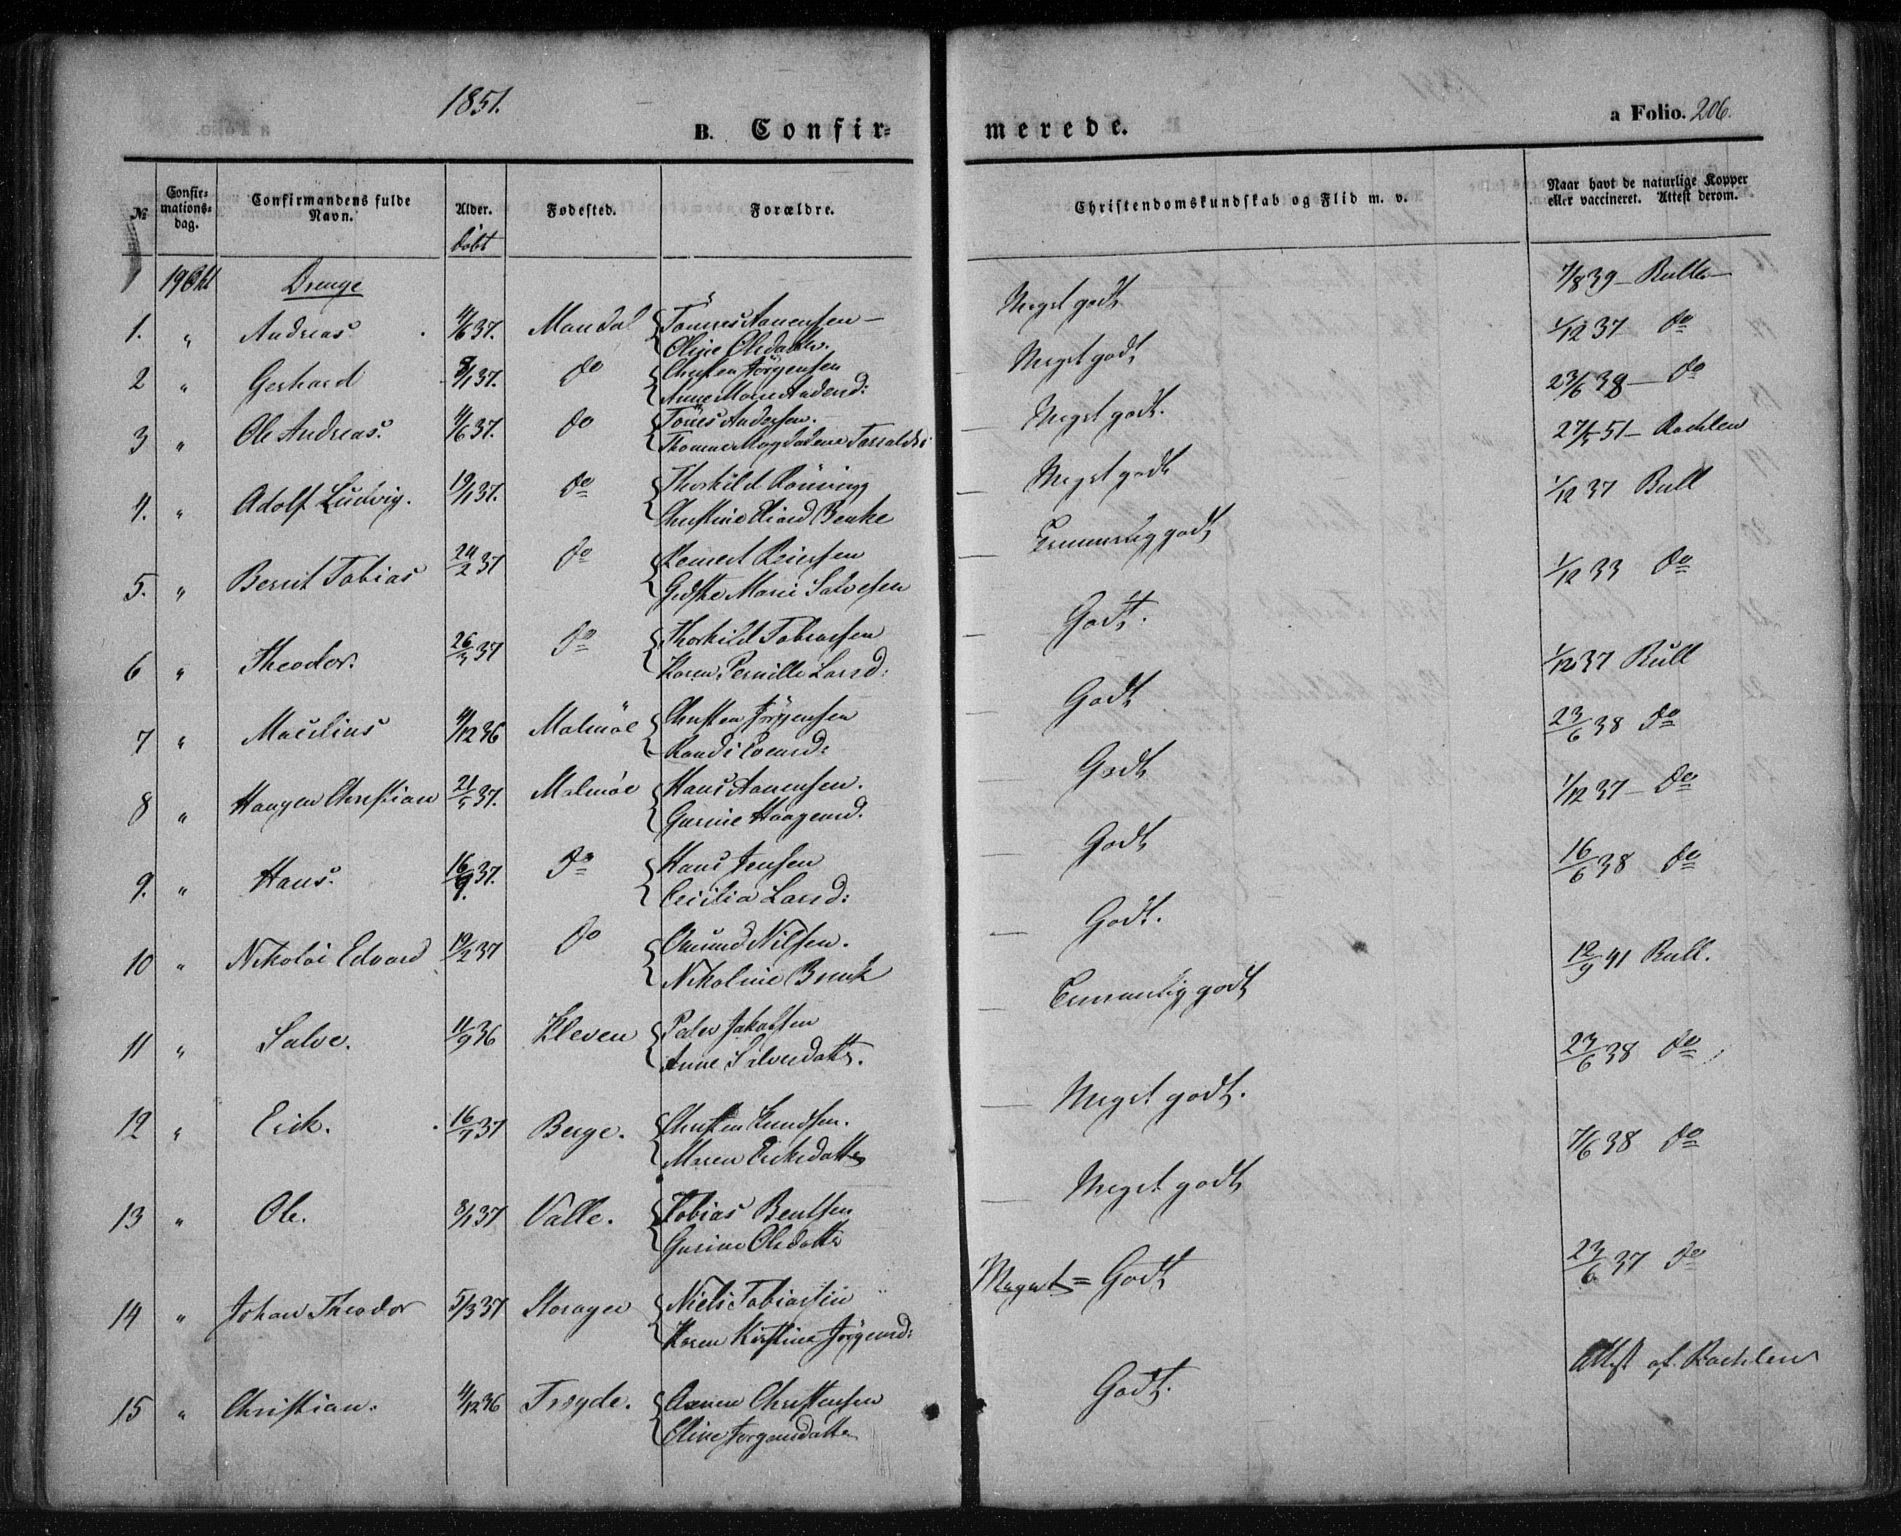 1851.
B. Confir= merede.
a Folio. 206.
№ Confir=mations=dag. Confirmandens fulde Navn. Alder. Fødested. Forældre. Christendomskundskab og Flid m. v. Naar havt de naturlige Kopper eller vaccineret. Attest derom.
døbt
19 Oktl Drenge
1. " Andreas. 4/6 37. Mandal Tønnes Aanensen — Meget godt 7/8 39 — Bull —
Oline Olsdatter.
2 " Gerhard 8/1 37. do Christen Jörgensen Meget godt 1/12 37 do
Anne Marie
3 " Ole Andreas. 4/6 37. do Tönes Andersen. Meget godt. 23/6 38 — do
Thomine Magdalene
4. " Adolf Ludvig. 19/1 37. do Thorkild Rönning Meget godt 51 — Rachlew
Christine Benke
5. " Bernt Tobias 24/2 37 do Reinert Reiersen Temmelig godt 1/12 37 Bull
Gidske Marie Salvesen
6 " Theodor. 26/3 37 do Thorkild Tobiassen Godt. 1/12 33 do
Karen Pernille Larsd:
7 " 4/12 36 Malmöe Christen Jörgensen Godt 1/12 37 Bull
Randi
8 " Haagen Christian 21/5 37. Malmöe Hans Aanensen. Godt 23/6 38 do
Gurine Haagensd:
9. " Hans. 16/9 37. do Hans Jensen Godt 1/12 37 — do
Cicilia Larsd:
10 " Nikolai Edvard 19/2 37 do Omund Nilsen. Godt. 16/6 38 do
Nikoline
11 " Salve. 11/9 36 Kleven Peder Jakobsen Temmelig godt 12/9 41 Bull.
Anne Salvesdatter.
12 " Erik. 16/7 37 Berge. Christen Knudsen. Meget godt. 23/6 38 do
Maren Eriksdatter
13 " Ole. 8/1 37 Valle. Tobias Bentsen Meget godt 7/6 38 do
Gurine Olsdatter
14 " Johan Theodor 5/3 37 Storøyen Niels Tobiassen Meget = Godt 23/6 37 do
Karen Kirstine Jörgensd:
15 " Christian. 4/12 36 Trøyde. Aanen Christensen Godt. Attest af Rachlew
Eline Jørgensdatter